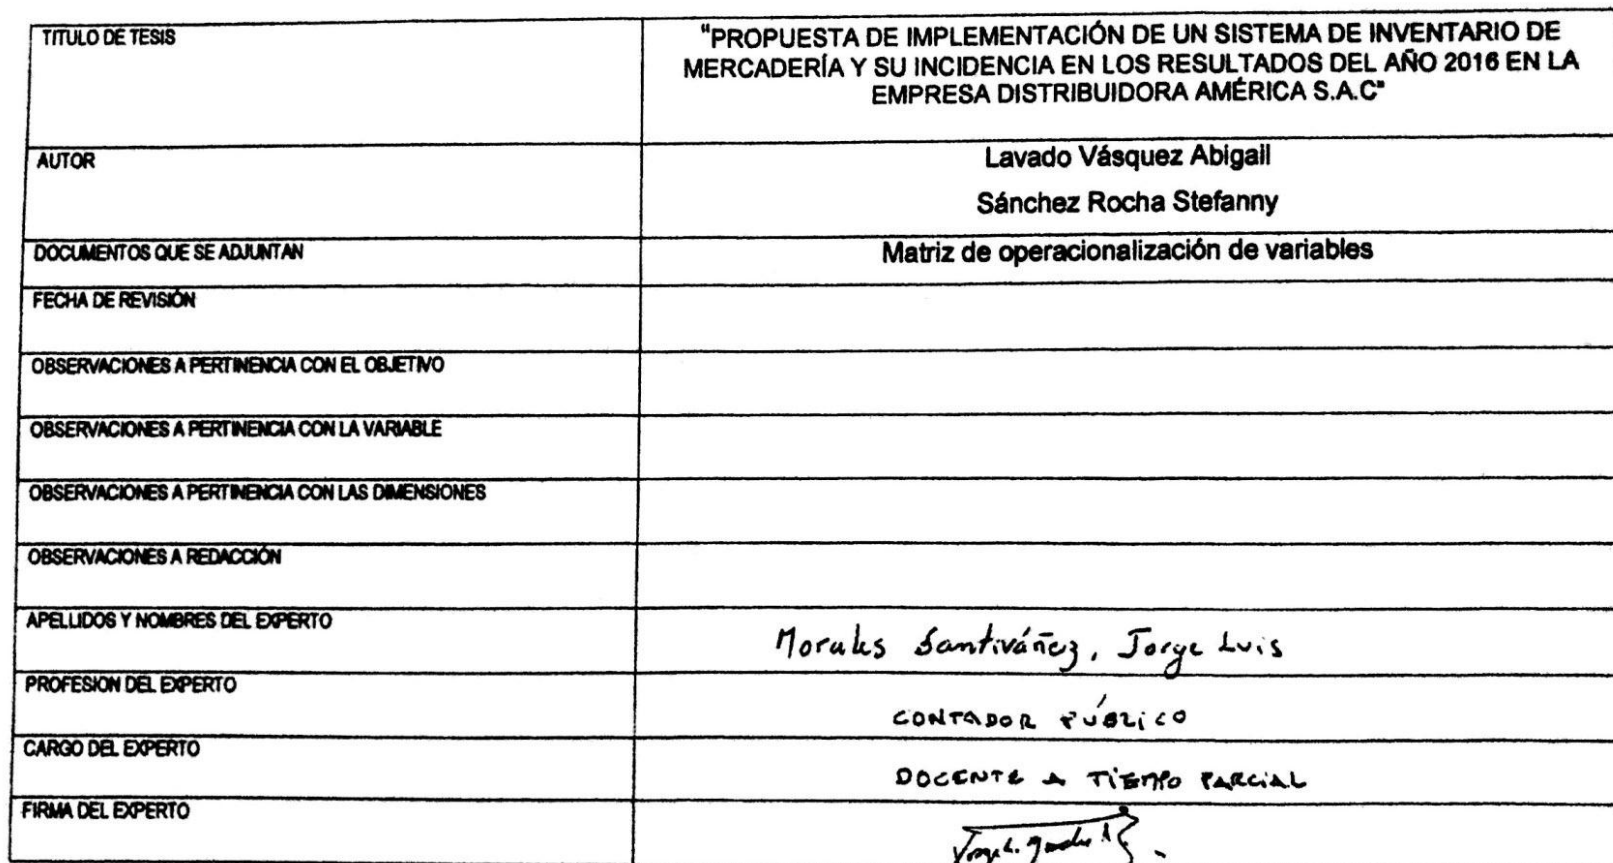 TITULO DE TESIS
"PROPUESTA DE IMPLEMENTACIÓN DE UN SISTEMA DE INVENTARIO DE
MERCADERÍA Y SU INCIDENCIA EN LOS RESULTADOS DEL AÑO 2016 EN LA
EMPRESA DISTRIBUIDORA AMÉRICA S.A.C"
AUTOR
Lavado Vásquez Abigail
Sánchez Rocha Stefanny
DOCUMENTOS QUE SE ADJUNTAN
Matriz de operacionalización de variables
FECHA DE REVISIÓN
OBSERVACIONES A PERTINENCIA CON EL OBJETIVO
OBSERVACIONES A PERTINENCIA CON LA VARIABLE
OBSERVACIONES A PERTINENCIA CON LAS DIMENSIONES
OBSERVACIONES A REDACCIÓN
APELLIDOS Y NOMBRES DEL EXPERTO
Morales Santiváñez, Jorge Luis
PROFESION DEL EXPERTO
CONTADOR PÚBLICO
CARGO DEL EXPERTO
DOCENTE A TIEMPO PARCIAL
FIRMA DEL EXPERTO